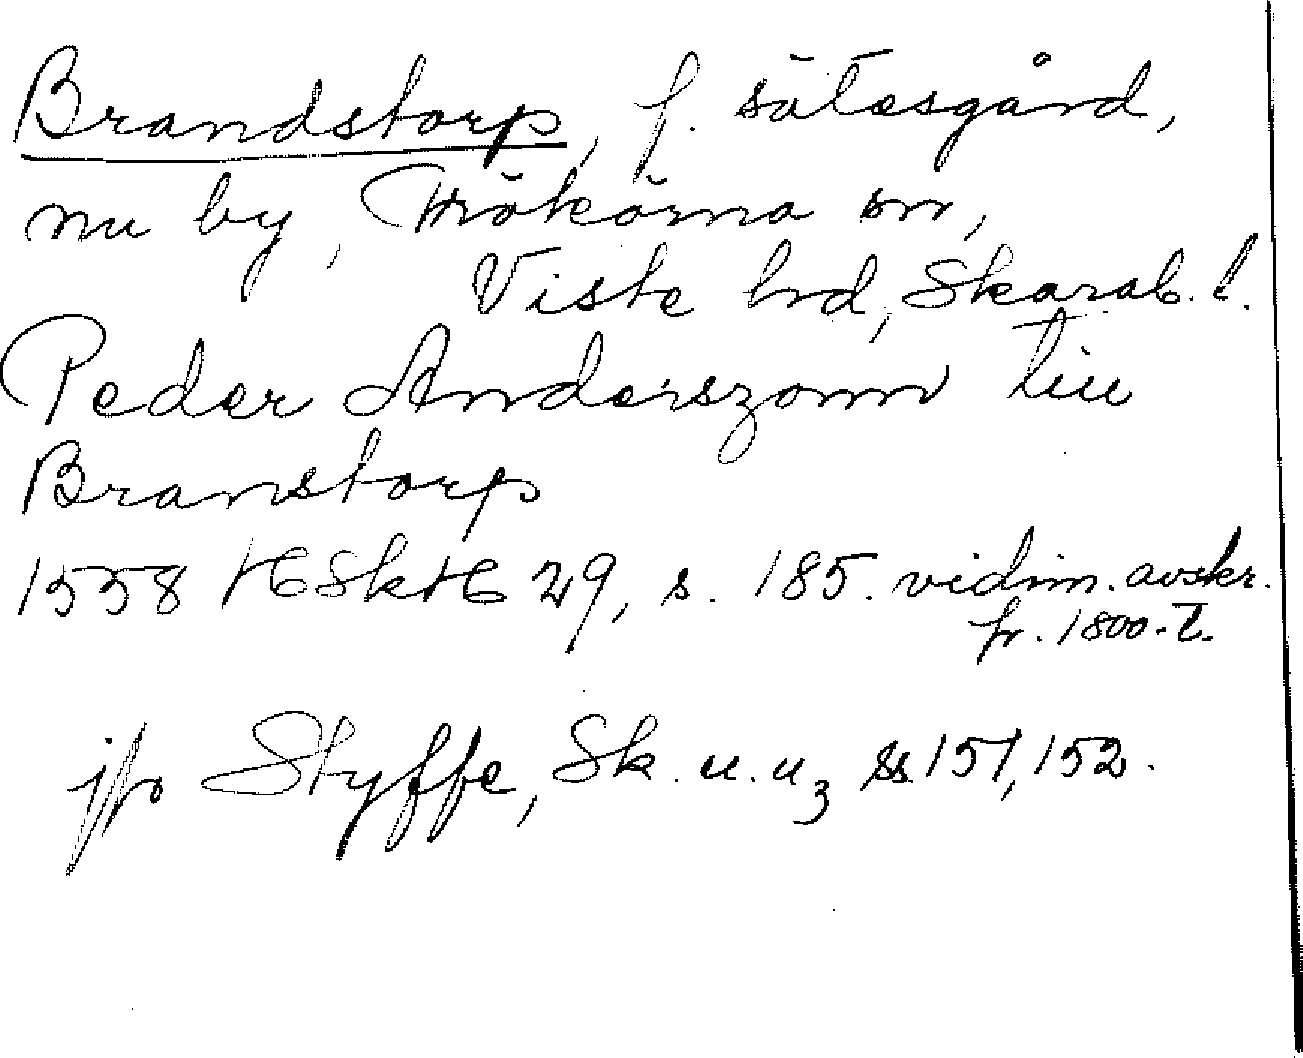 Brandstorp, f. sätesgård,
nu by, Trökörna sn,
Viste hd, Skarab. l.
Peder Anderszonn tiu
Branstorp
1558 HSkH 29, s. 185. vidim. avskr.
fr. 1800-t.
jfr Styffe, Sk. u. u3 ss 151, 152.